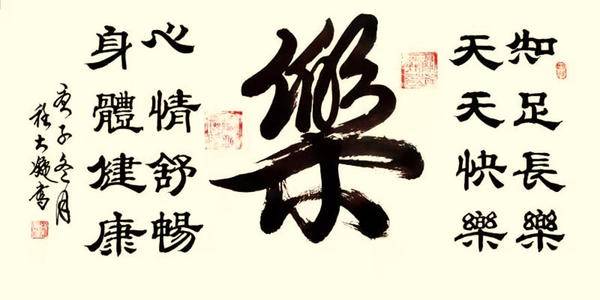 知足長樂
天天快樂
樂
心情舒暢
身體健康
庚子冬月
程大凝書